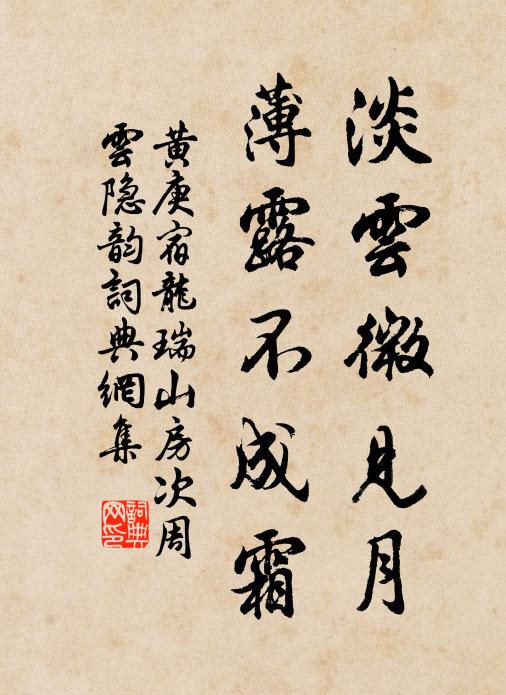 淡雲微見月
薄露不成霜
黃庚宿龍瑞山房次周
雲隐韵詞典網集
詞典
网印